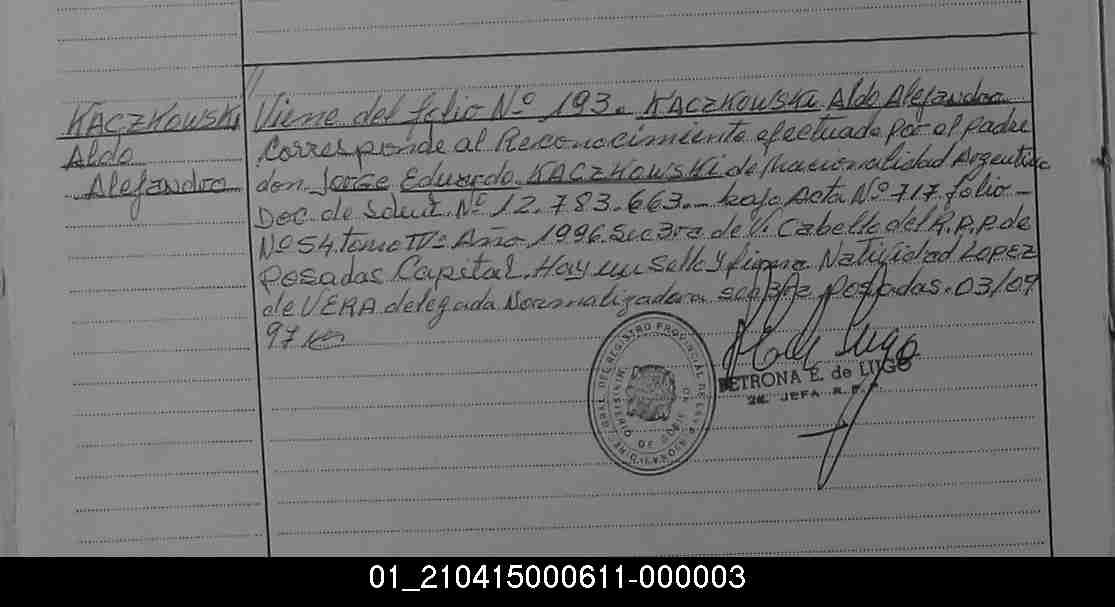 KACZKOWSKI
Aldo
Alejandro
Viene del folio Nº 193. KACZKOWSKI Aldo Alejandro
corresponde al Reconocimiento efectuado por el padre
don Jorge Eduardo KACZKOWSKI de Nacionalidad Argentina
Doc. de Ident. Nº 12.783.663.- bajo Acta Nº 717 folio-
Nº 54. tomo IVº Año 1996. Sec 3ra de V. Cabello del R.P.P. de
Posadas Capital. Hay un Sello y firma Natividad LOPEZ
de VERA delegada Normalizadora Posadas. 03/09
97
PETRONA E. de LUGO
JEFA R.P.P.
REGISTRO PROVINCIAL DE LAS PERSONAS
MINISTERIO DE GOBIERNO
01_210415000611-000003